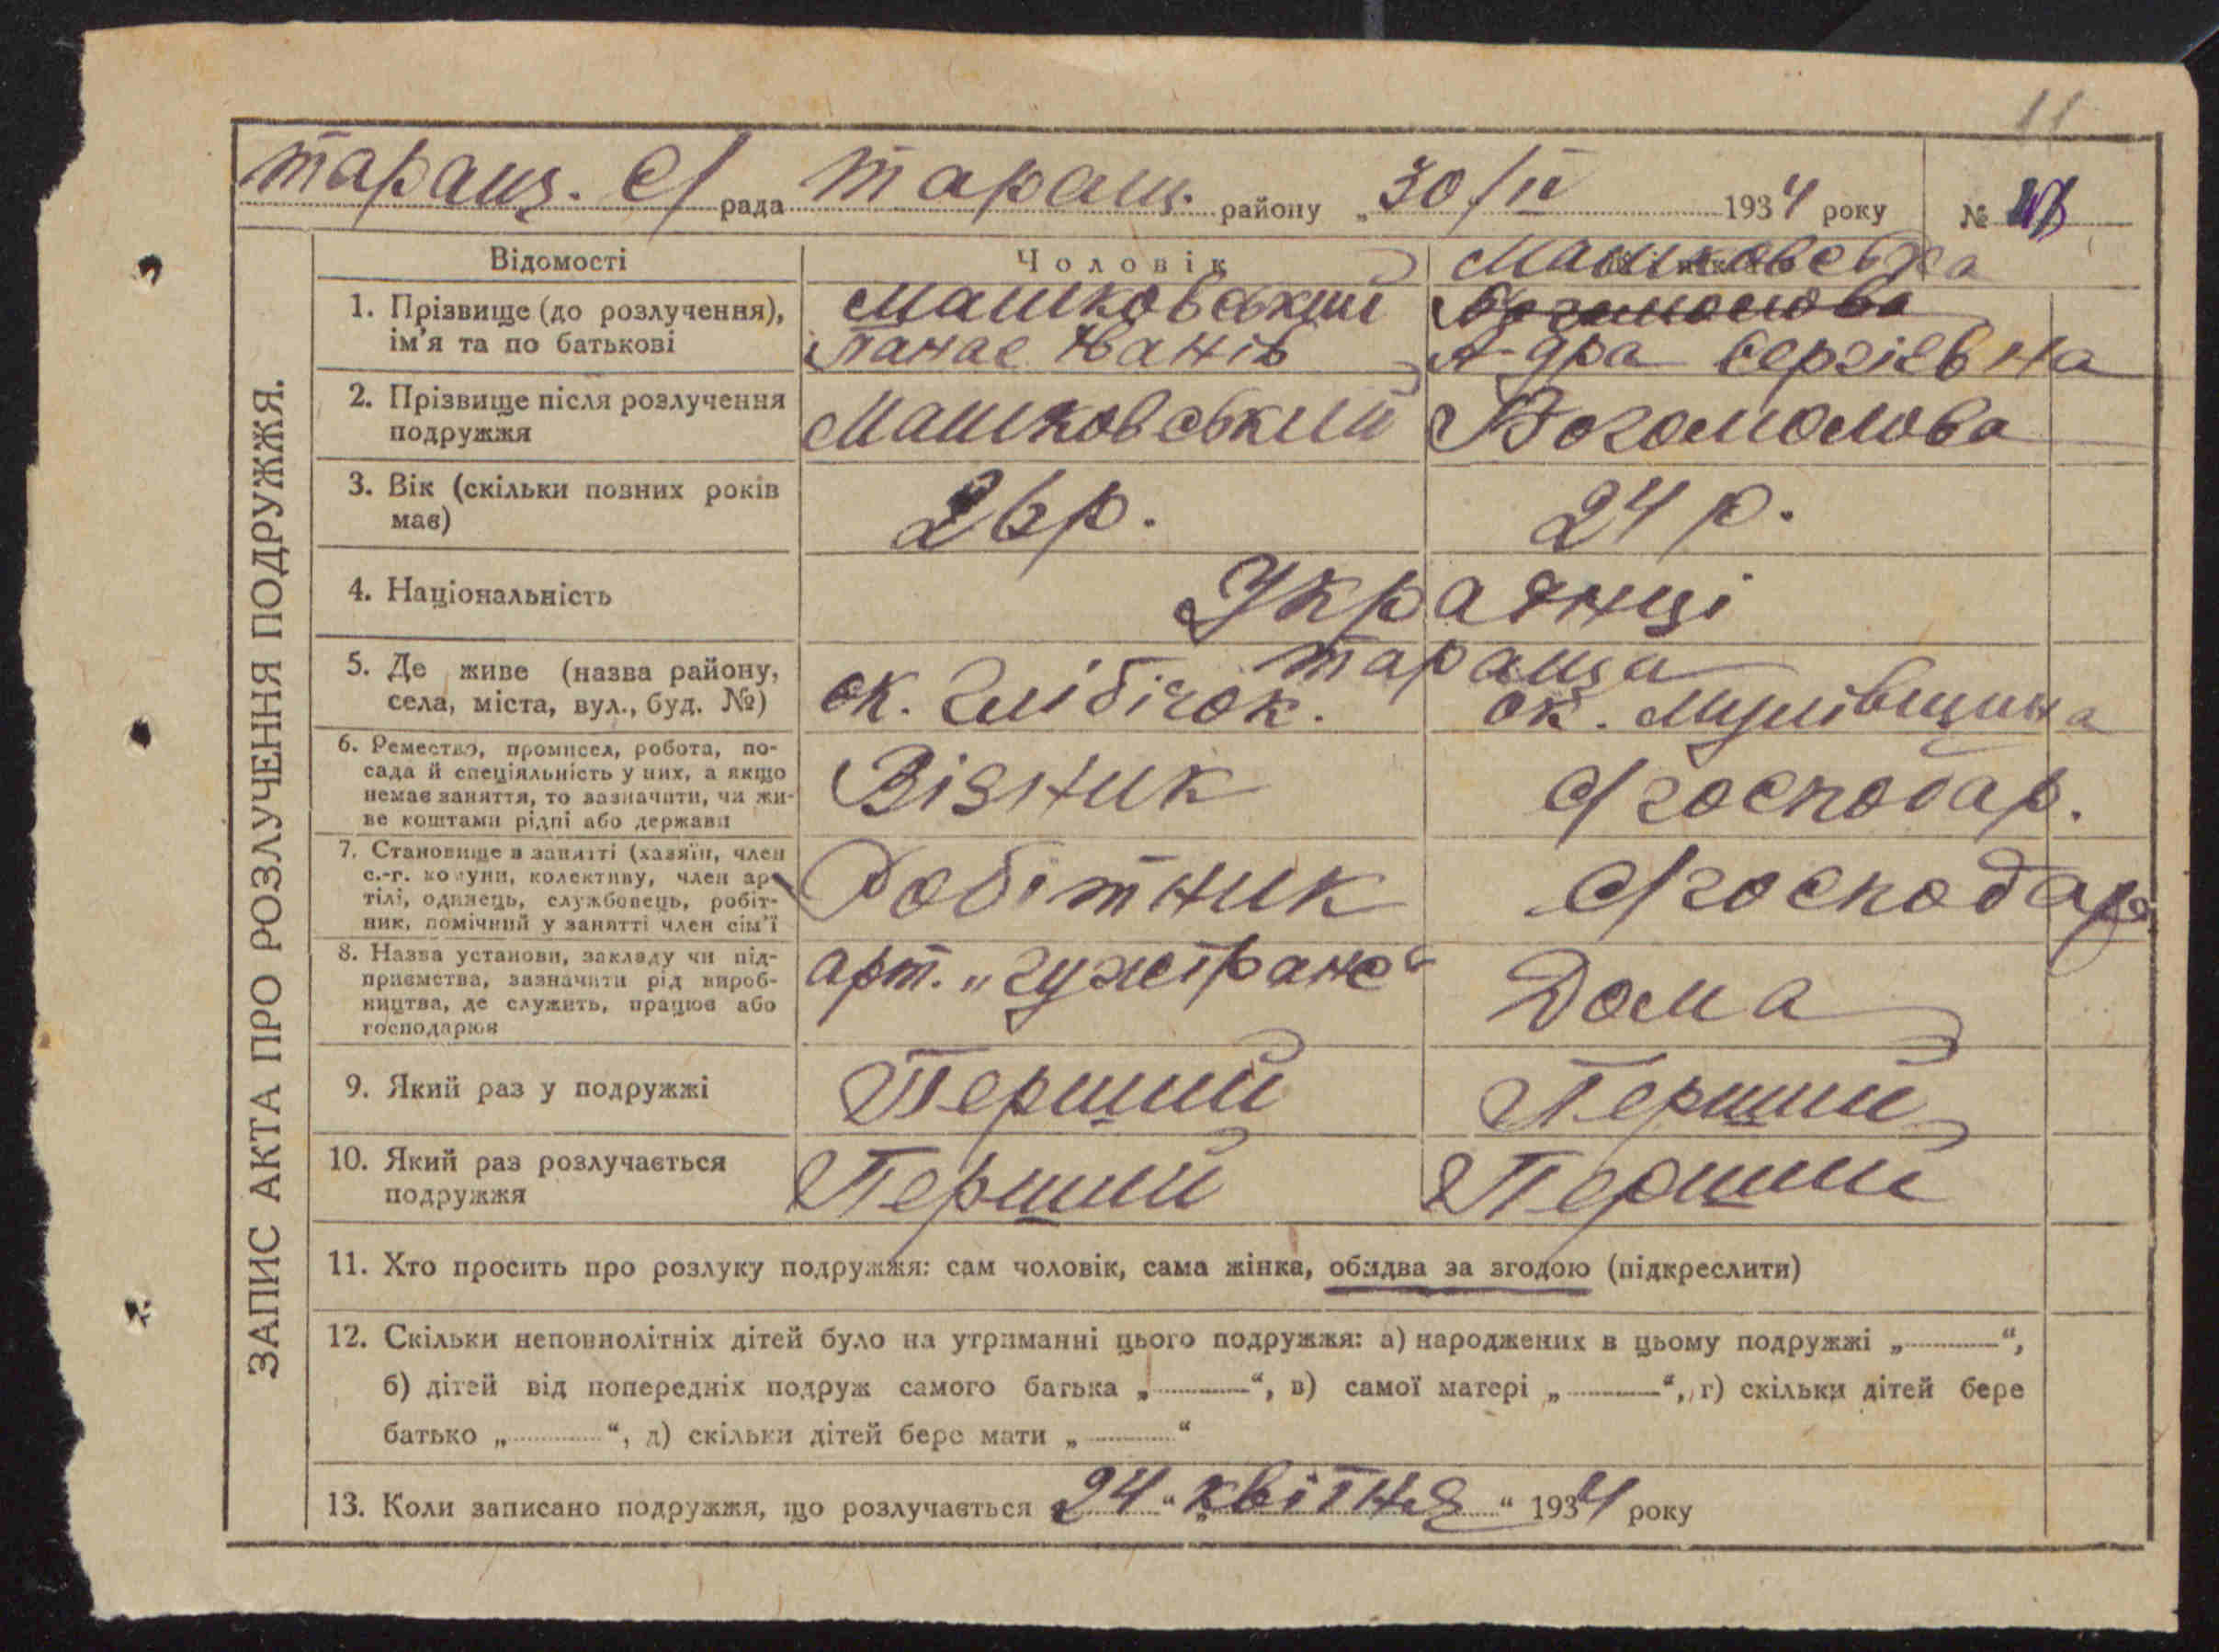 11
Таращ. с/рада Таращ. району „30/IV 1934 року №
Відомості
Чоловік
Машковська
1. Прізвище (до розлучення), ім'я та по батькові
Машковський
Панас Іванів
Богомолова
А-дра Сергіївна
2. Прізвище після розлучення подружжя
Машковський
Богомолова
3. Вік (скільки повних років має)
26 р.
24 р.
4. Національність
Українці
5. Де живе (назва району, села, міста, вул., буд. №)
Тараща
ок. Глібічок.
ок. Мулівщина
6. Ремество, промисел, робота, по-
сада й спеціяльність у них, а якщо
немає заняття, то зазначити, чи жи-
ве коштами рідні або держави
Візник
с/господар.
7. Становище в занятті (хазяїн, член
с.-г. комуни, колективу, член ар-
тілі, одинець, службовець, робіт-
ник, помічний у занятті член сім'ї
Робітник
с/господар
8. Назва установи, закладу чи під-
приємства, зазначити рід вироб-
ництва, де служить, працює або
господарює
арт. „Гужтранс“
Дома
9. Який раз у подружжі
Перший
Перший
10. Який раз розлучається подружжя
Перший
Перший
11. Хто просить про розлуку подружжя: сам чоловік, сама жінка, обидва за згодою (підкреслити)
12. Скільки неповнолітніх дітей було на утриманні цього подружжя: а) народжених в цьому подружжі „ “,
б) дітей від попередніх подруж самого батька „ “, в) самої матері „ “, г) скільки дітей бере
батько „ “, д) скільки дітей бере мати „ “
13. Коли записано подружжя, що розлучається „24“ „квітня“ 1934 року
ЗАПИС АКТА ПРО РОЗЛУЧЕННЯ ПОДРУЖЖЯ.